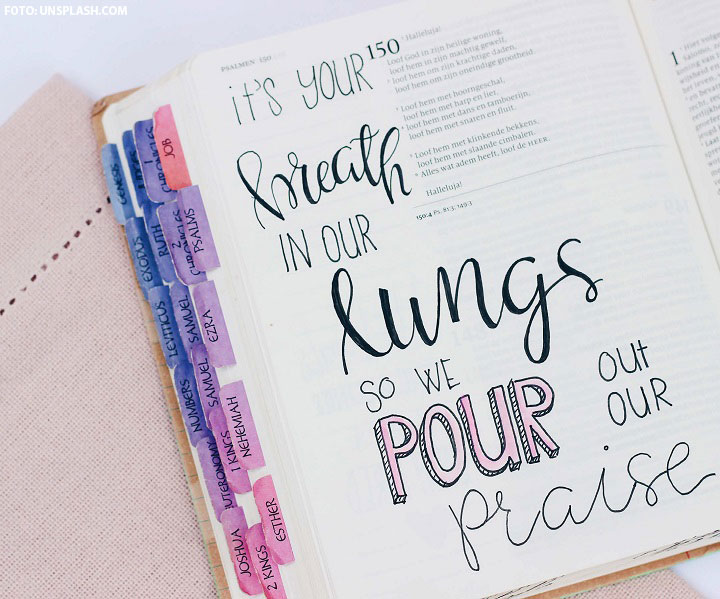 FOTO: UNSPLASH.COM
PSALMEN 150
150
Halleluja!
Loof God in zijn heilige woning,
loof hem in zijn machtig gewelf,
loof hem om zijn krachtige daden,
loof hem om zijn oneindige grootheid.
Loof hem met hoorngeschal,
loof hem met harp en lier,
loof hem met dans en tamboerijn,
loof hem met snaren en fluit.
Loof hem met klinkende bekkens,
loof hem met slaande cimbalen.
Alles wat adem heeft, loof de HEER.
Halleluja!
150:4 Ps. 81:3; 149:3
it's YOUR
breath
IN OUR
lungs
SO WE
POUR
out
OUR
praise
GENESIS
1 CHRONICLES
JOB
EXODUS
RUTH
2 CHRONICLES
PSALMS
LEVITICUS
SAMUEL
EZRA
NUMBERS
SAMUEL
UTERONOMY
1 KINGS
NEHEMIAH
JOSHUA
2 KINGS
ESTHER
1